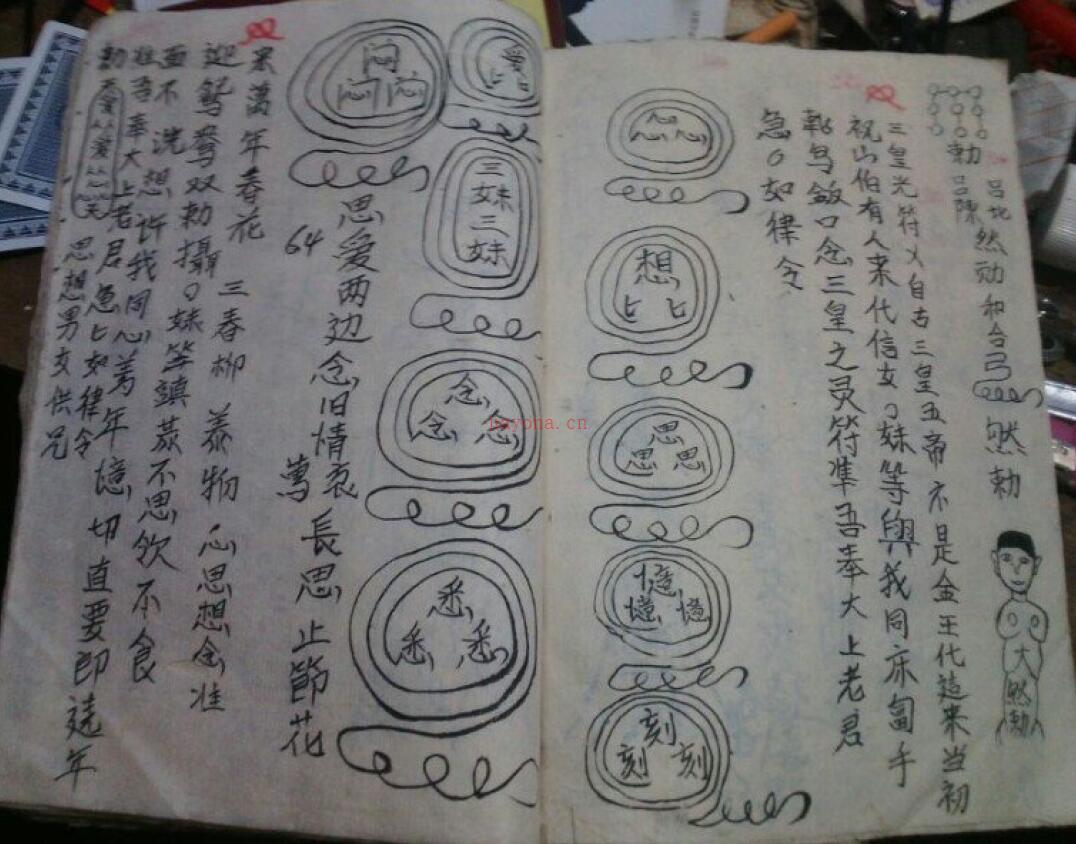 勅
呂
陳
然勅和合弓
然勅
大
然勅
三皇光符乂自古三皇五帝不是金王代造来当初
祝山伯有人来代信女〇妹等與我同床手
口念三皇之灵符準吾奉大上老君
急〇如律令
心心心
想匕匕
思思思
憶憶憶
刻刻刻
爱匕匕
三妹三妹
念念念
悉悉悉
思爱两边念旧情哀
萬長思止節花
64
来萬年春花 三春柳 恭物心思想念准
迎鸳鸯双勅攝〇妹等鎮不思飲不食
面不洗想許我同心萬年憶切直要即遠年
准吾奉大上老君急匕如律令
勅
思想男女供兄
nayona.cn